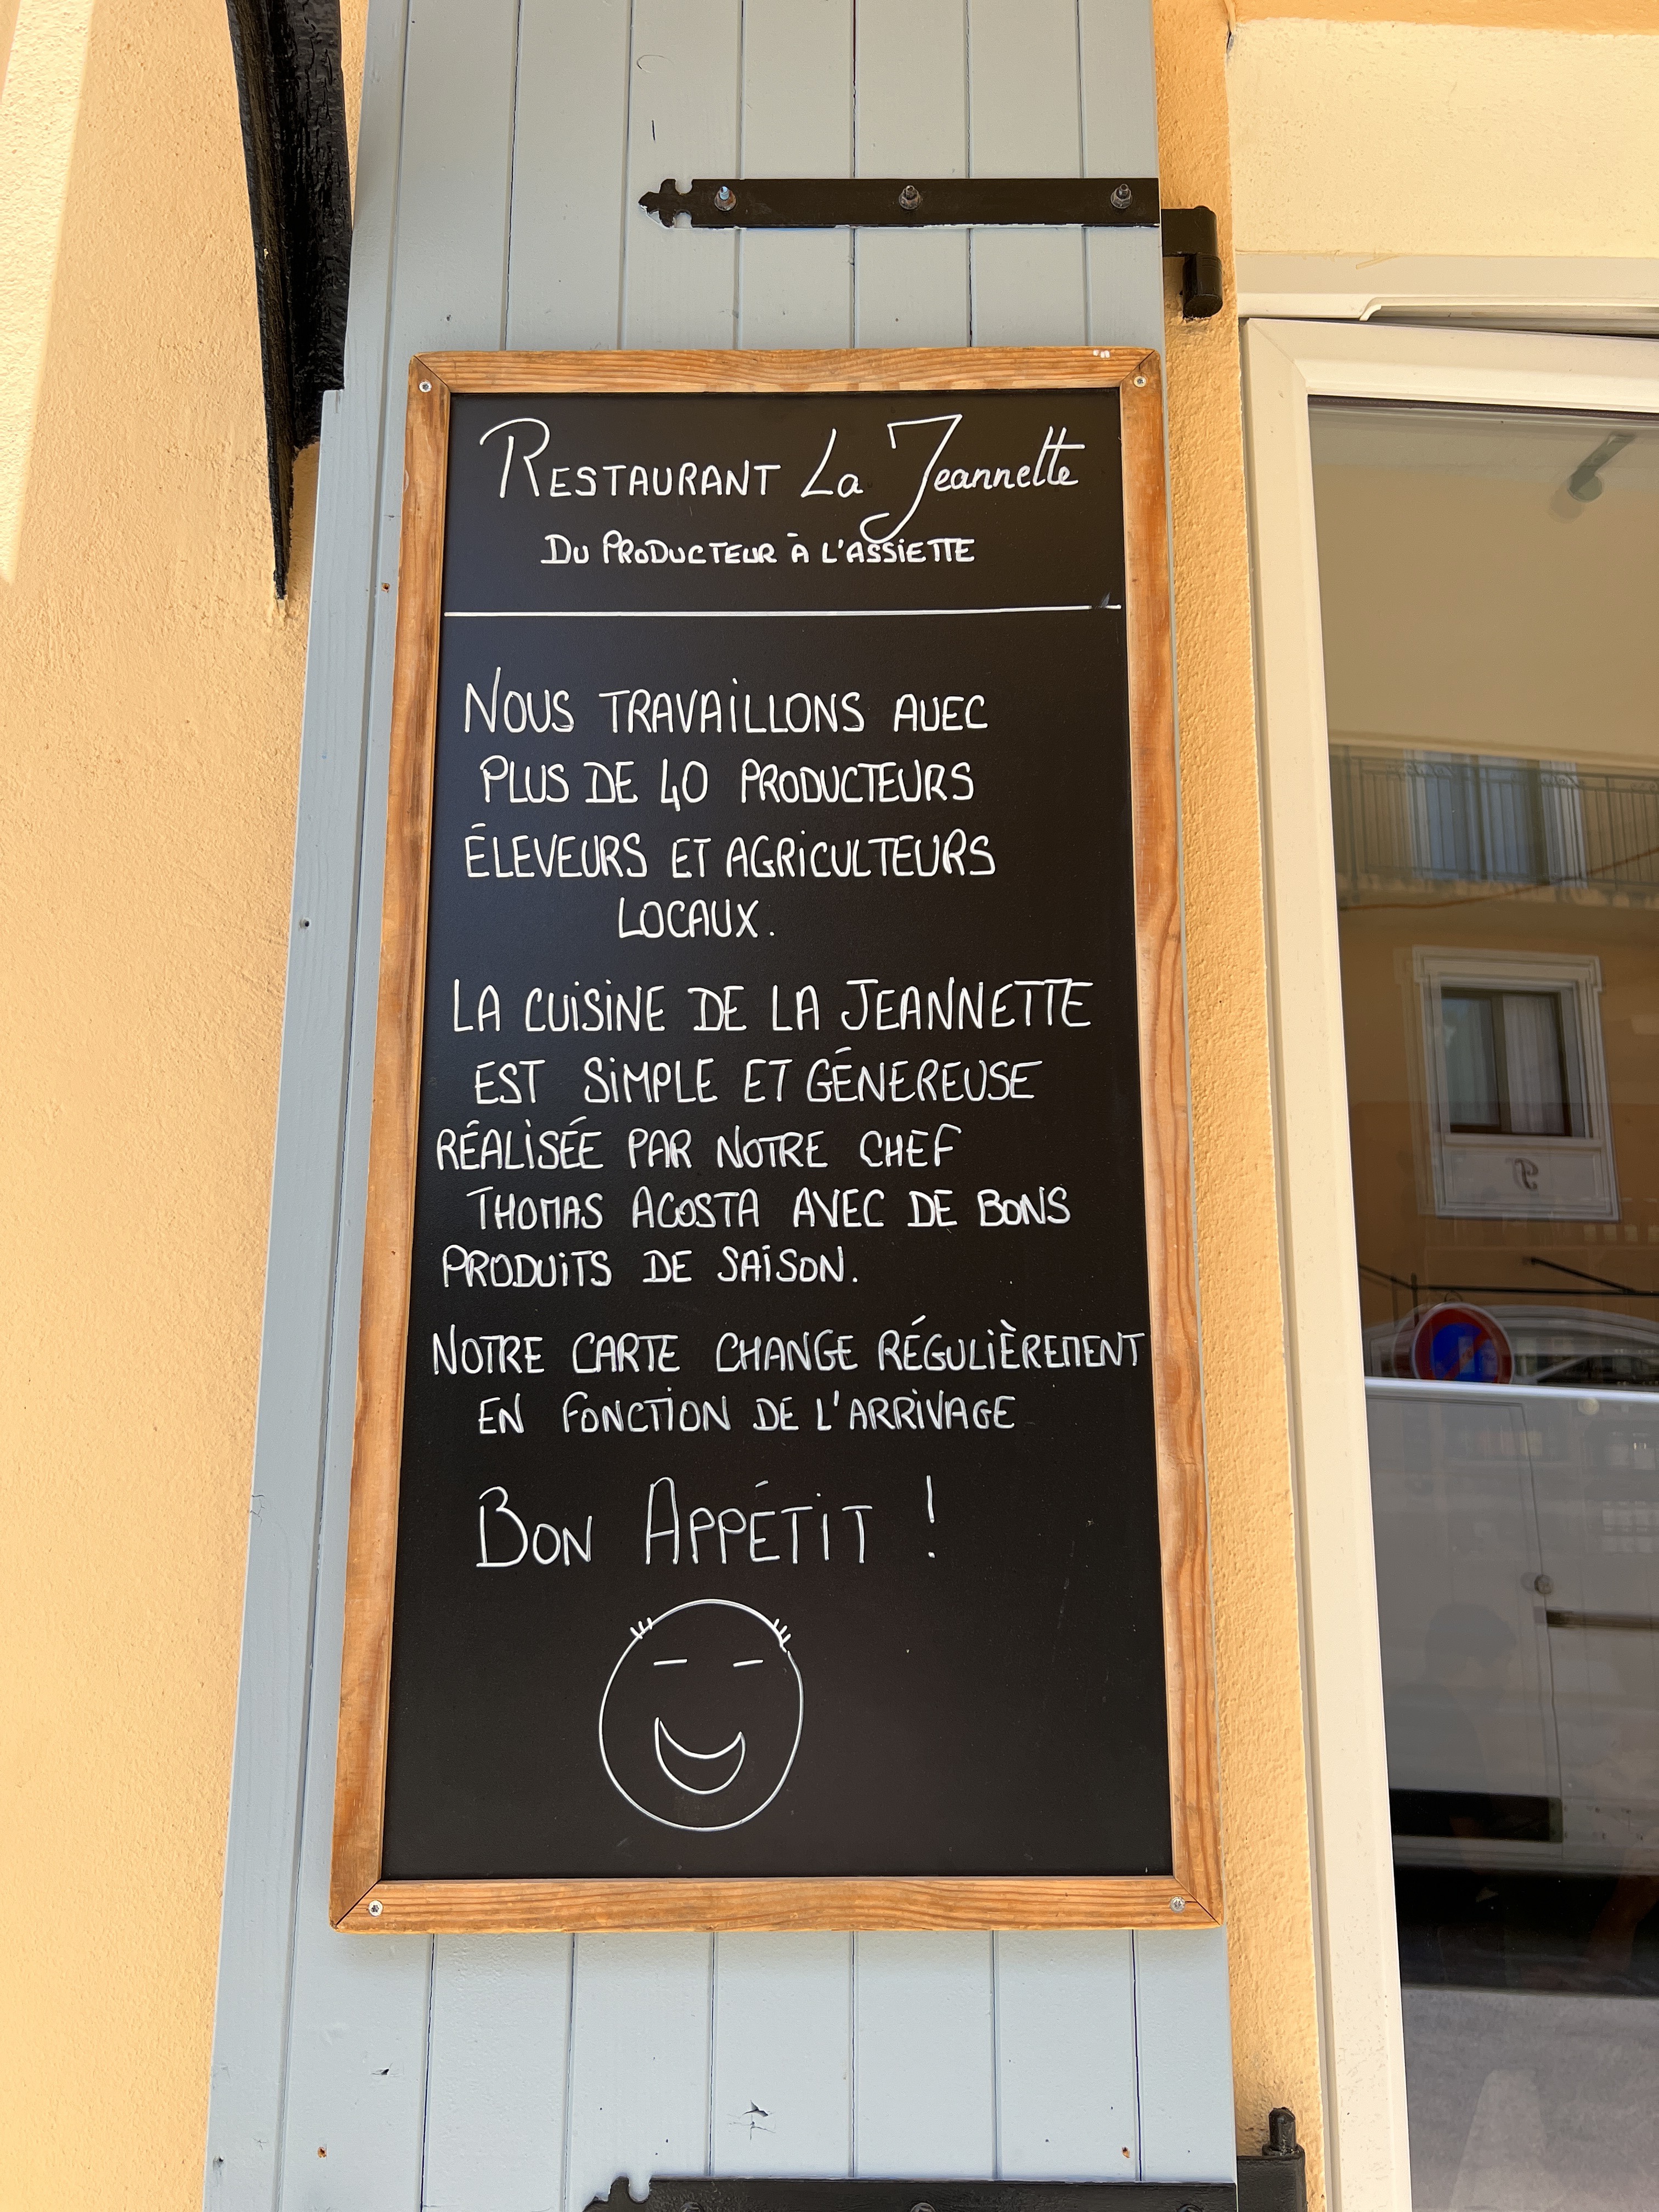 RESTAURANT La Jeannette
DU PRODUCTEUR À L'ASSIETTE
NOUS TRAVAILLONS AVEC
PLUS DE 40 PRODUCTEURS
ÉLEVEURS ET AGRICULTEURS
LOCAUX.
LA CUISINE DE LA JEANNETTE
EST SIMPLE ET GÉNEREUSE
RÉALISÉE PAR NOTRE CHEF
THOMAS ACOSTA AVEC DE BONS
PRODUITS DE SAISON.
NOTRE CARTE CHANGE RÉGULIÈREMENT
EN FONCTION DE L'ARRIVAGE
BON APPÉTIT !